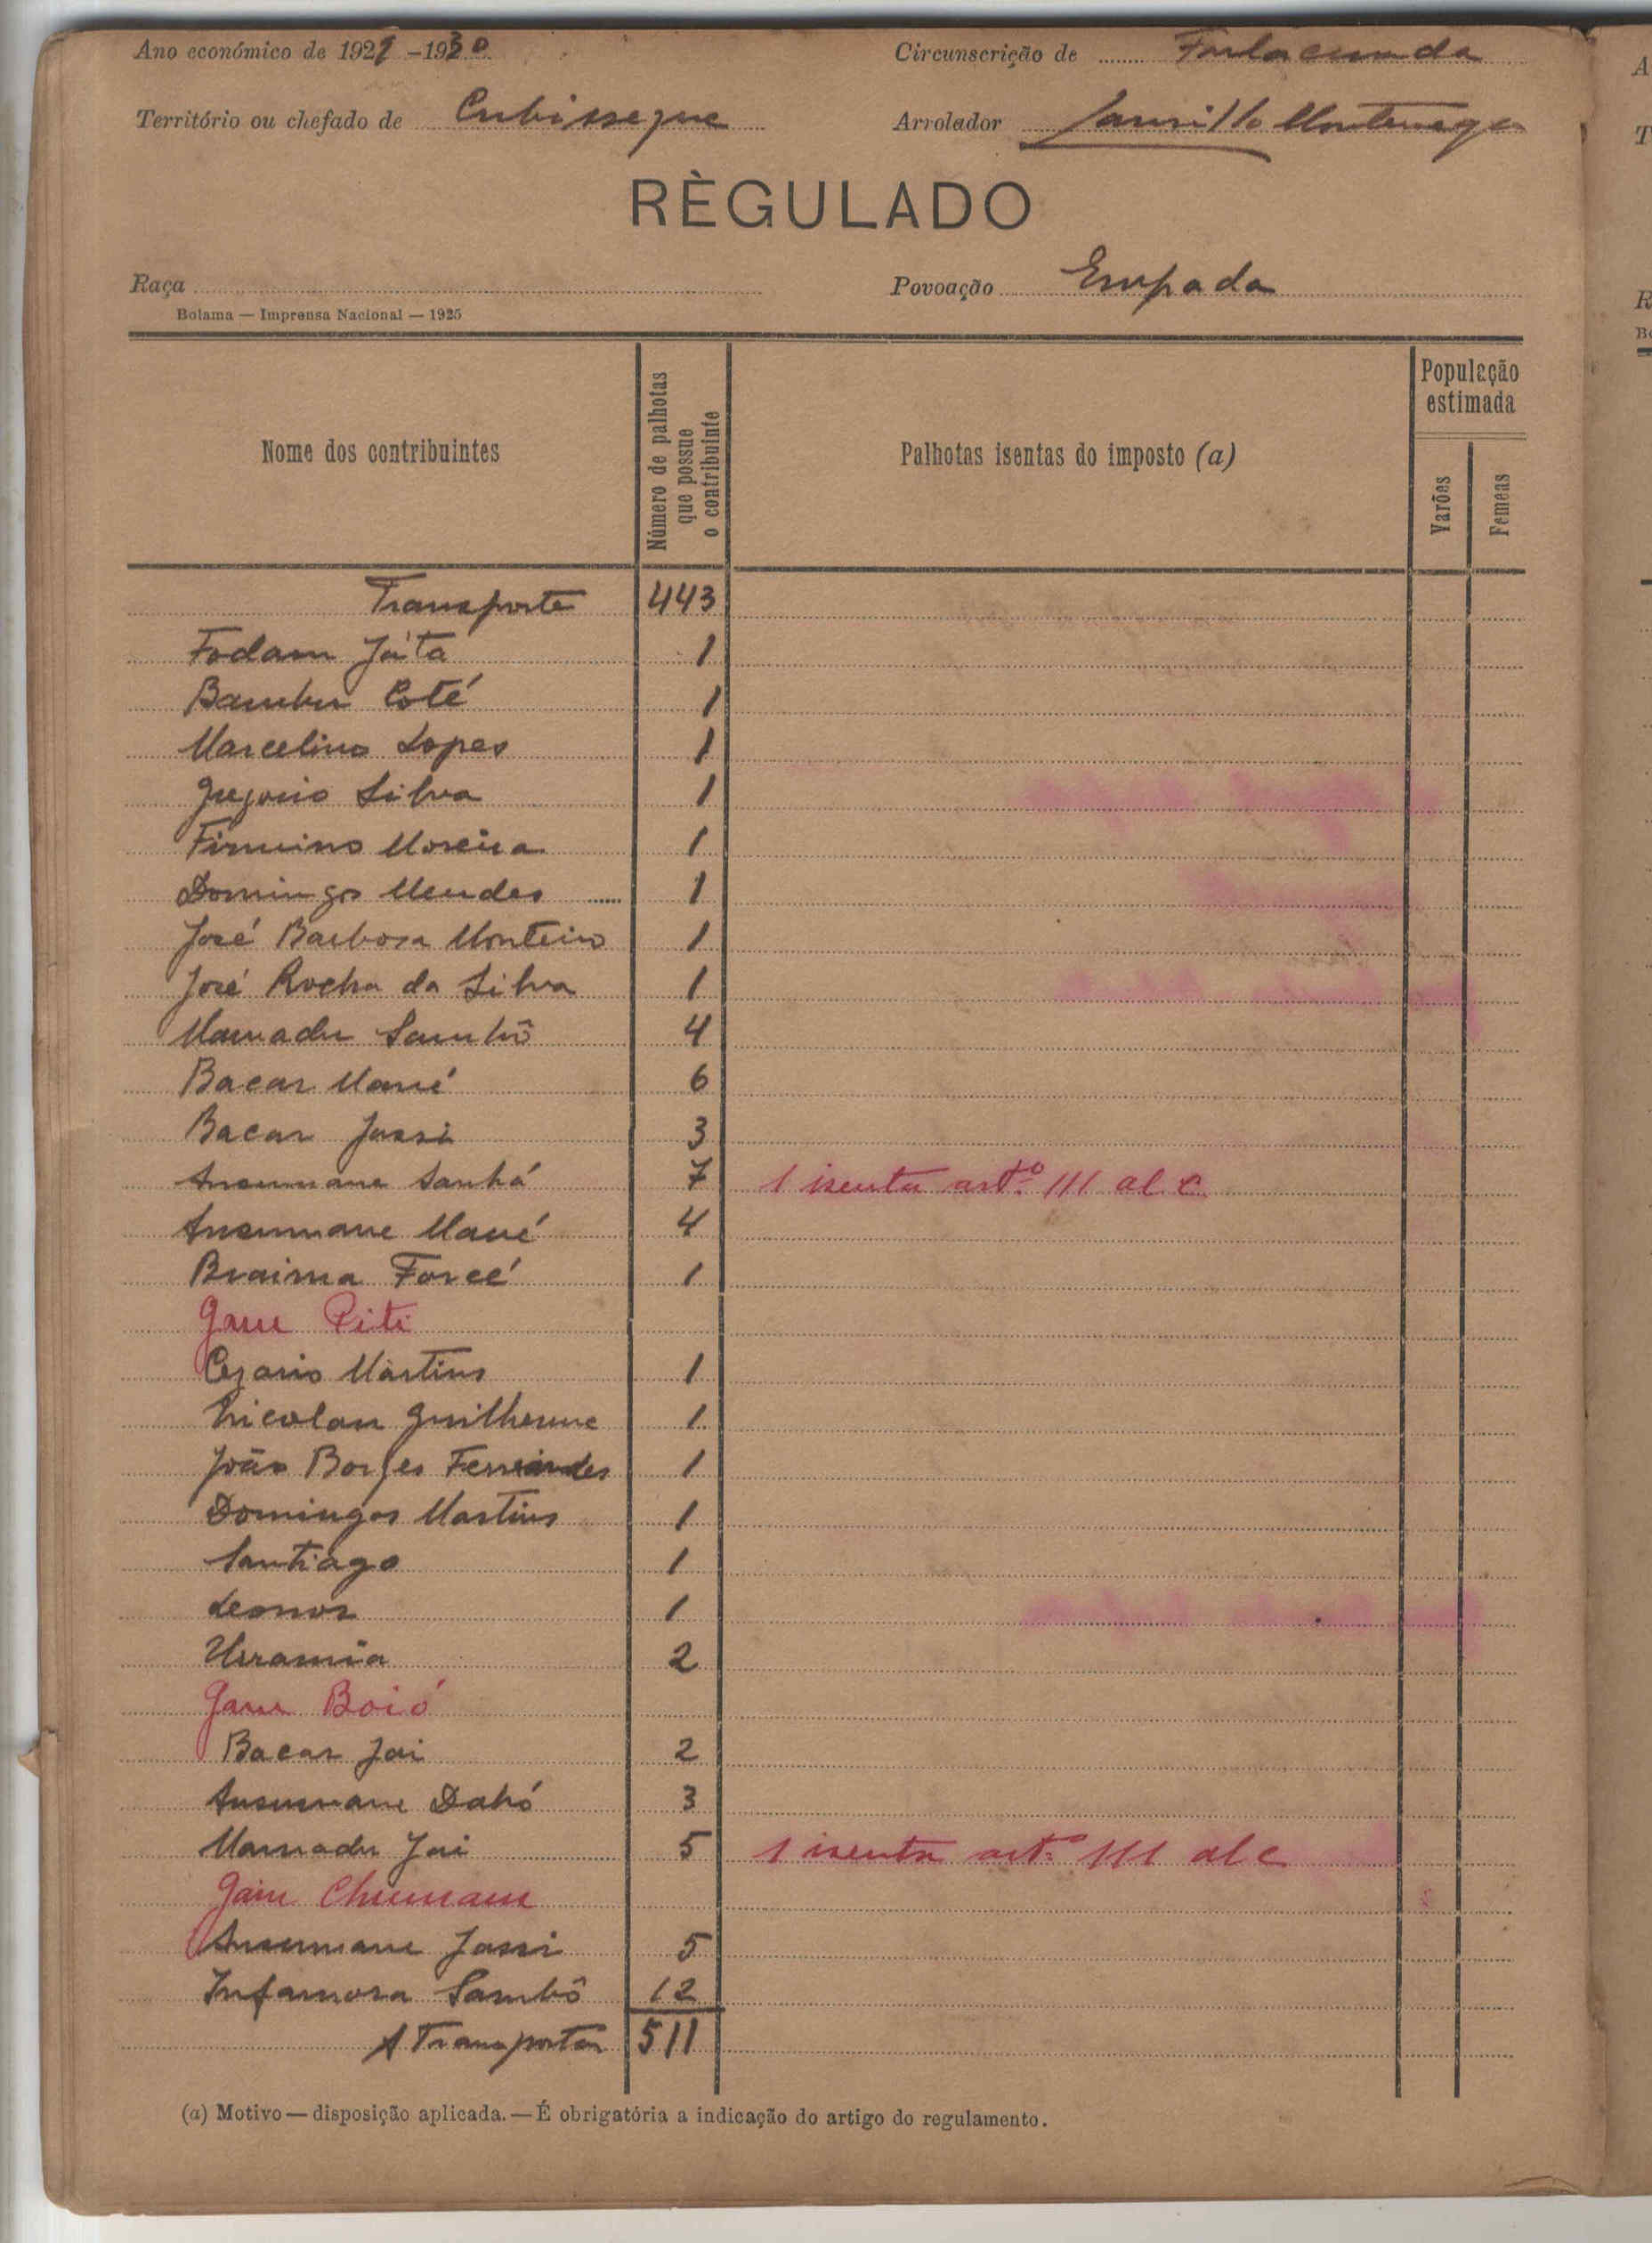 Ano económico de 1929-1930
Circunscrição de Fulacunda
Território ou chefado de Cubisseque
Arrolador Montenegro
RÈGULADO
Raça
Povoação Empada
Bolama — Imprensa Nacional — 1925
Nome dos contribuintes
Número de palhotas que possue o contribuinte
Palhotas isentas do imposto (a)
População estimada
Varões
Femeas
Transporte 443
Fodam Játa 1
Bambu Coté 1
Marcelino Lopes 1
Gregorio Silva 1
Firmino Moreira 1
Domingos Mendes 1
José Barbosa Monteiro 1
José Rocha da Silva 1
Mamadu Sambô 4
Bacar Mané 6
Bacar Jassi 3
Ansumane Sanhá 7 1 isenta artº 111 al. c.
Ansumane Mané 4
Braima Forcé 1
Gam Piti
Cezario Martins 1
Nicolau Guilherme 1
João Borges Fernandes 1
Domingos Martins 1
Santiago 1
Leonor 1
2
Gam Boió
Bacar Jai 2
Ansumane Dahó 3
Mamadu Jai 5 1 isenta artº 111 al c
Gam Chumam
Ansumane Jassi 5
Infamora Sambô 12
A Transportar 511
(a) Motivo — disposição aplicada. — É obrigatória a indicação do artigo do regulamento.